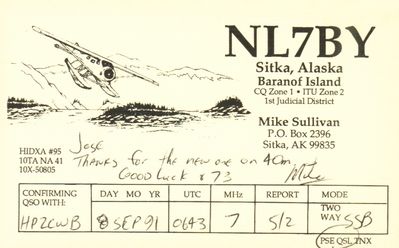 NL7BY
Sitka, Alaska
Baranof Island
CQ Zone 1 • ITU Zone 2
1st Judicial District
Mike Sullivan
P.O. Box 2396
Sitka, AK 99835
HIDXA #95
10TA NA 41
10X-50805
Jose
Thanks for the new one on 40m
Good Luck & 73
Mike
CONFIRMING QSO WITH: DAY MO YR UTC MHz REPORT MODE
HP2CWB 8 SEP 91 0643 7 5/2 TWO WAY SSB
PSE QSL TNX